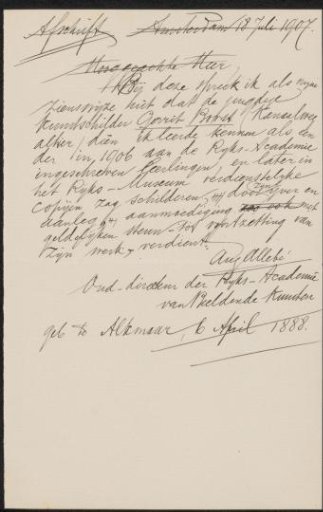 Afschrift Amsterdam 18 Juli 1907.
Hooggeachte Heer,
Bij deze spreek ik als mijne
zienswijze uit dat de jeugdige
kunstschilder Gerrit
dien ik leerde kennen als een
der in 1906 aan de Ryks-Academie
ingeschreven leerlingen, en later in
het Ryks-Museum verdienstelijke
copijen zag schilderen, door zijn ijver en
aanleg aanmoediging ook met
geldelijken steun tot voortzetting van
zijn werk, verdient.
Aug Allebé
Oud-directeur der Ryks-Academie
van Beeldende Kunsten
geb te Alkmaar, 6 April 1888.